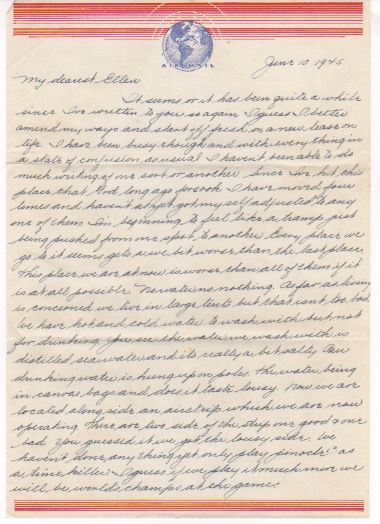 AIR MAIL
June 10 1945
My dearest Ellen
It seems or it has been quite a while
since I've written to you so again I guess I better
amend my ways and start off fresh on a new lease on
life. I have been busy though and with everything in
a state of confusion as usual I havent been able to do
much writing of one sort or another. Since Ive hit this
place that God long ago forsook I have moved four
times and havent as yet got my self adjusted to any
one of them. Im beginning to feel like a tramp just
being pushed from one spot to another. Every place we
go to it seems gets a wee bit worse than the last place.
This place we are at now is worse than all of them if it
is at all possible. No water no nothing. As far as living
is concerned we live in large tents but that isnt too bad.
We have hot and cold water to wash with but not
for drinking. You see the water we wash with is
distilled sea water and its really a bit salty. Our
drinking water is hung up on poles. The water being
in canvas bags and does it taste lousy. Now we are
located along side an airstrip which we are now
operating. There are two side of the strip one good & one
bad. You guessed it we got the lousy side. We
havent done any thing yet only play penocle as
a time killer. I guess if we play it much more we
will be worlds champs at the game.